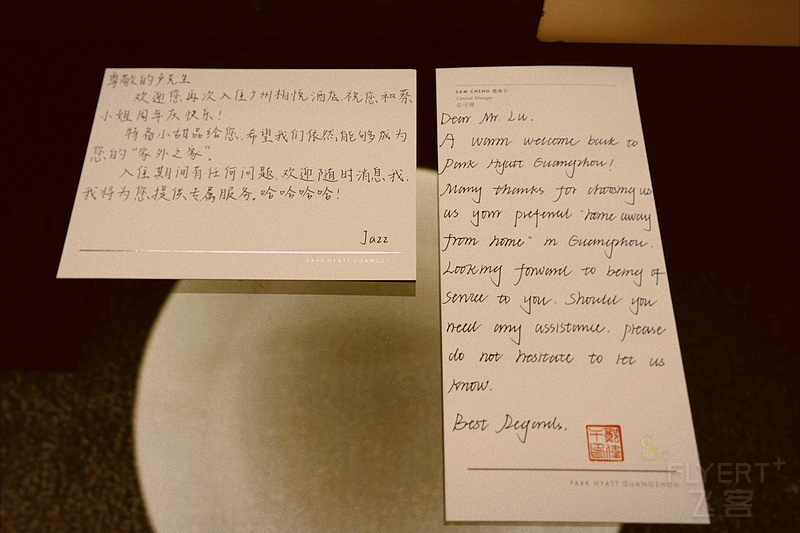 尊敬的卢先生
欢迎您再次入住广州柏悦酒店.祝您和蔡
小姐周年庆快乐!
特备小甜品给您.希望我们依然能够成为
您的"家外之家".
入住期间有任何问题.欢迎随时消息我.
我将为您提供专属服务.哈哈哈哈!
Jazz
PARK HYATT GUANGZHOU
SAM CHENG
General Manager
总经理
Dear Mr. Lu.
A warm welcome back to
Park Hyatt Guangzhou!
Many thanks for choosing us
as your preferred "home away
from home" in Guangzhou.
Looking forward to being of
service to you. Should you
need any assistance. please
do not hesitate to let us
know.
Best Regards.
PARK HYATT GUANGZHOU
FLYERT+
飞客